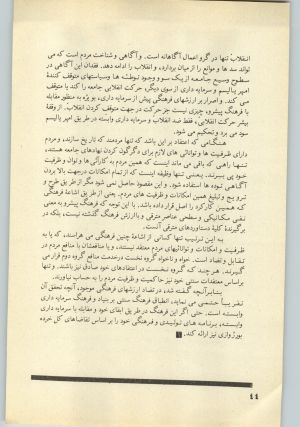 انقلاب تنها در گرو اعمال آگاهانه است. و آگاهی و شناخت مردم است که می
تواند سد ها و موانع را از میان بردارد، و انقلاب را ادامه دهد. فقدان این آگاهی در
سطوح وسیع جامعه از یک سو و وجود توطئه ها وسیاستهای متوقف کنندهٔ
امپریالیسم و سرمایه داری از سوی دیگر، حرکت انقلابی جامعه را کند یا متوقف
می کند. و اصرار بر ارزشهای فرهنگی پیش از سرمایه داری، بویژه به منظور مقابله
با فرهنگ پیشرو، چیزی نیست جز حرکت در جهت متوقف کردن انقلاب. از وقفهٔ
حرکت انقلابی، فقط ضد انقلاب و سرمایه داری وابسته در طریق امپریالیسم
سود می برد و تحکیم می شود.
هنگامی که اعتقاد بر این باشد که تنها مردمند که تاریخ سازند، و مردم
دارای ظرفیت ها و توانائی های لازم برای دگرگون کردن نهادهای جامعه هستند،
تنها راهی که باقی می ماند اینست که همین مردم به کارآئی ها و توان و ظرفیت
خود پی ببرند. یعنی تنها وظیفه اینست که از تمام امکانات درجهت بالا بردن
آگاهی توده ها استفاده شود. و این مقصود حاصل نمی شود مگر از طریق طرح و
ترویج و تبلیغ همین امکانات و ظرفیت های مردم. یعنی از طریق اشاعهٔ فرهنگی
که همین کارکرد را اصل قرار داده باشد. با این توجه که فرهنگ پیشرو به معنی
نفی مکانیکی و سطحی عناصر مترقی و باارزش فرهنگ گذشته نیست، بلکه در
برگیرندهٔ کلیهٔ دستاوردهای مترقی آنست.
به این ترتیب تنها کسانی از اشاعهٔ چنین فرهنگی می هراسند، که یا به
ظرفیت و امکانات و توانائیهای مردم معتقد نیستند، و یا منافعشان با منافع مردم در
تقابل و تضاد است. خواه و ناخواه گروه نخست درخدمت منافع گروه دوم قرار می
گیرند. هر چند که گروه نخست در اعتقادهای خود صادق نیز باشند. و تنها
براساس معتقدات سنتی خود نیز حاکمیت و ظرفیت مردم را به حساب نیاورند.
بنابرآنچه گفته شد، در تضاد ارزشهای فرهنگی موجود، آنچه تحقق آن
تقریباً حتمی می نماید، انطباق فرهنگ سنتی بر بنیاد و فرهنگ سرمایه داری
وابسته است. حتی اگر این فرهنگ در طریق ابقای خود و مقابله با سرمایه داری
وابسته، برنامه های تولیدی و فرهنگی خود را بر اساس تقاضاهای کل خرده
بورژوازی نیز ارائه کند.
۴۴